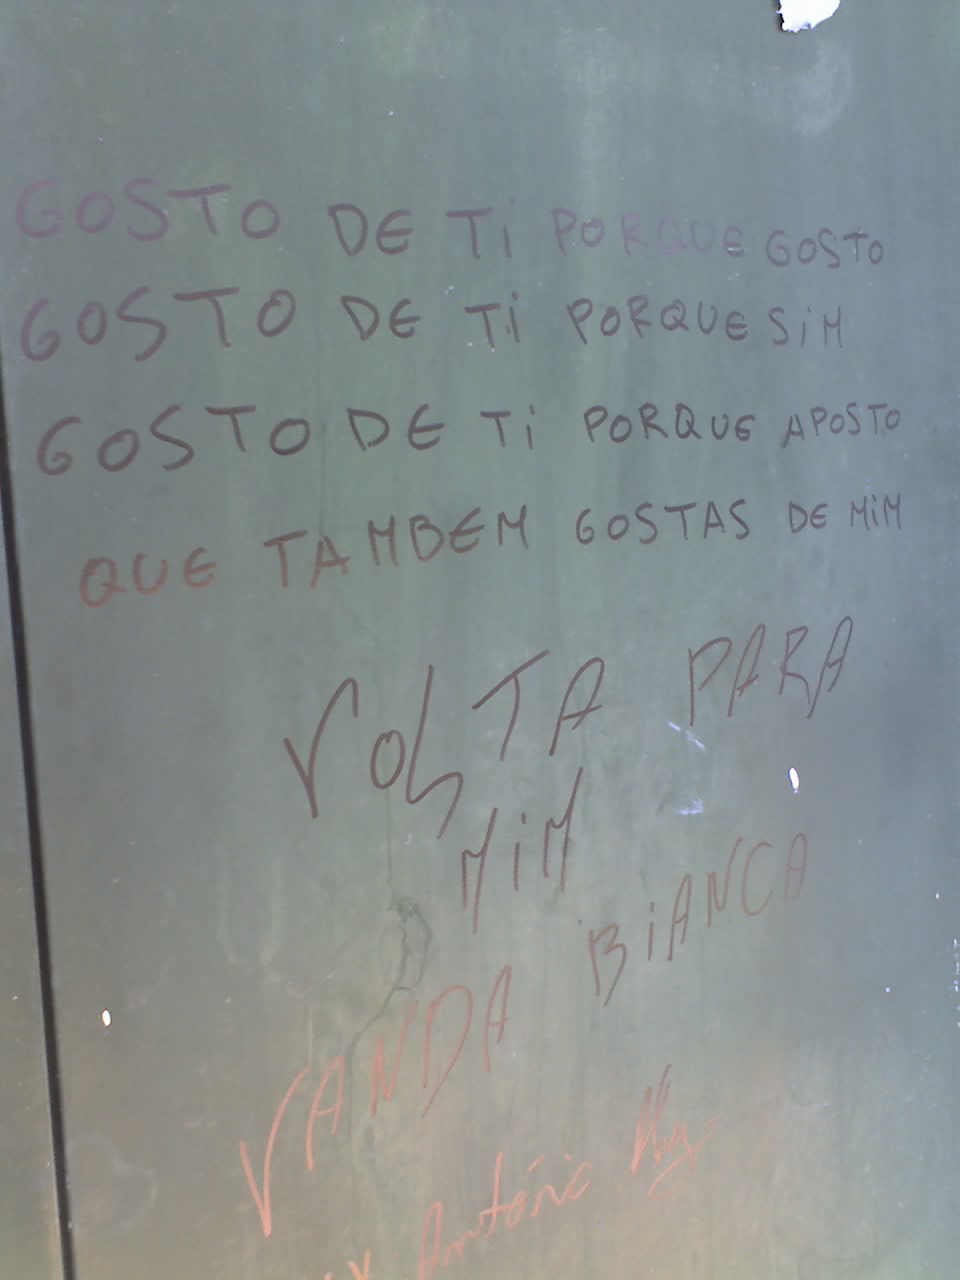 GOSTO DE Ti PORQUE GOSTO
GOSTO DE Ti PORQUE SiM
GOSTO DE Ti PORQUE APOSTO
QUE TAMBEM GOSTAS DE MiM
VOLTA PARA
MiM
VANDA BiANCA
António